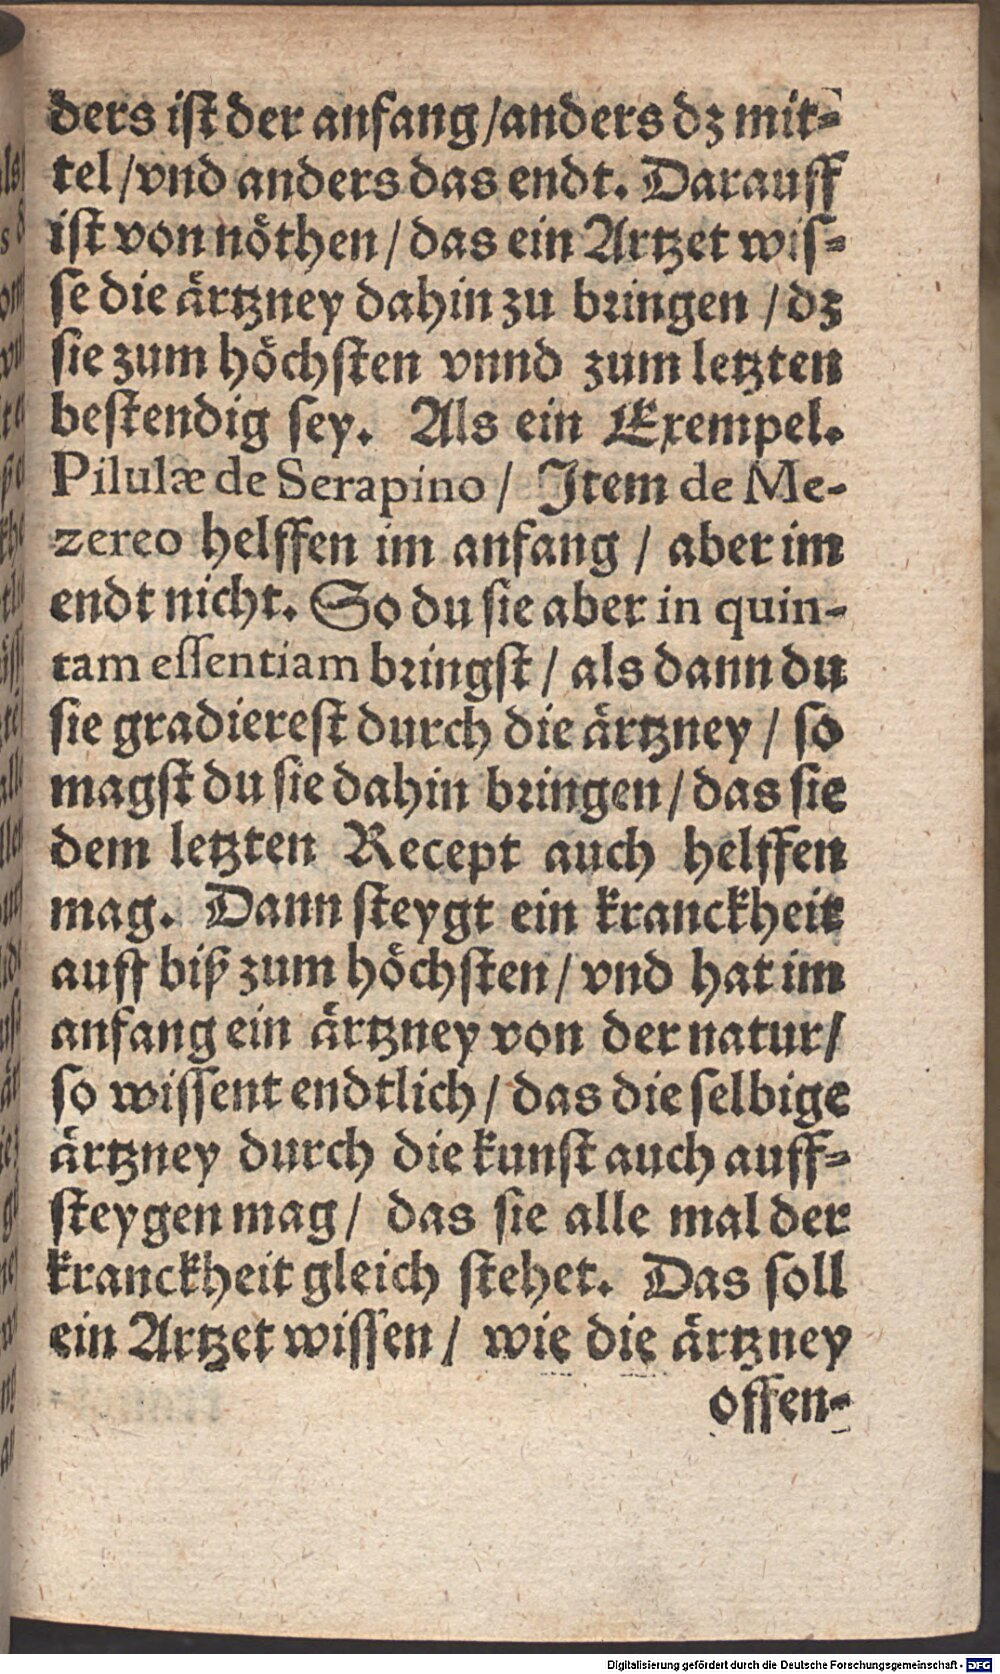 ders iſt der anfang/anders dz mit⸗
tel/vnd anders das endt. Darauff
iſt von nöthen/das ein Artzet wiſ⸗
ſe die ärtzney dahin zu bringen/dz
ſie zum höchſten vnnd zum letzten
beſtendig ſey. Als ein Exempel.
Pilulæ de Serapino/ Item de Me-
zereo helffen im anfang/aber im
endt nicht. So du ſie aber in quin-
tam eſſentiam bringſt/als dann du
ſie gradiereſt durch die ärtzney/ſo
magſt du ſie dahin bringen/das ſie
dem letzten Recept auch helffen
mag. Dann ſteygt ein kranckheit
auff biß zum höchſten/vnd hat im
anfang ein ärtzney von der natur/
ſo wiſſent endtlich/das die ſelbige
ärtzney durch die kunſt auch auff⸗
ſteygen mag/ das ſie alle mal der
kranckheit gleich ſtehet. Das ſoll
ein Artzet wiſſen/ wie die ärtzney
offen⸗
Digitalisierung gefördert durch die Deutsche Forschungsgemeinschaft - DFG